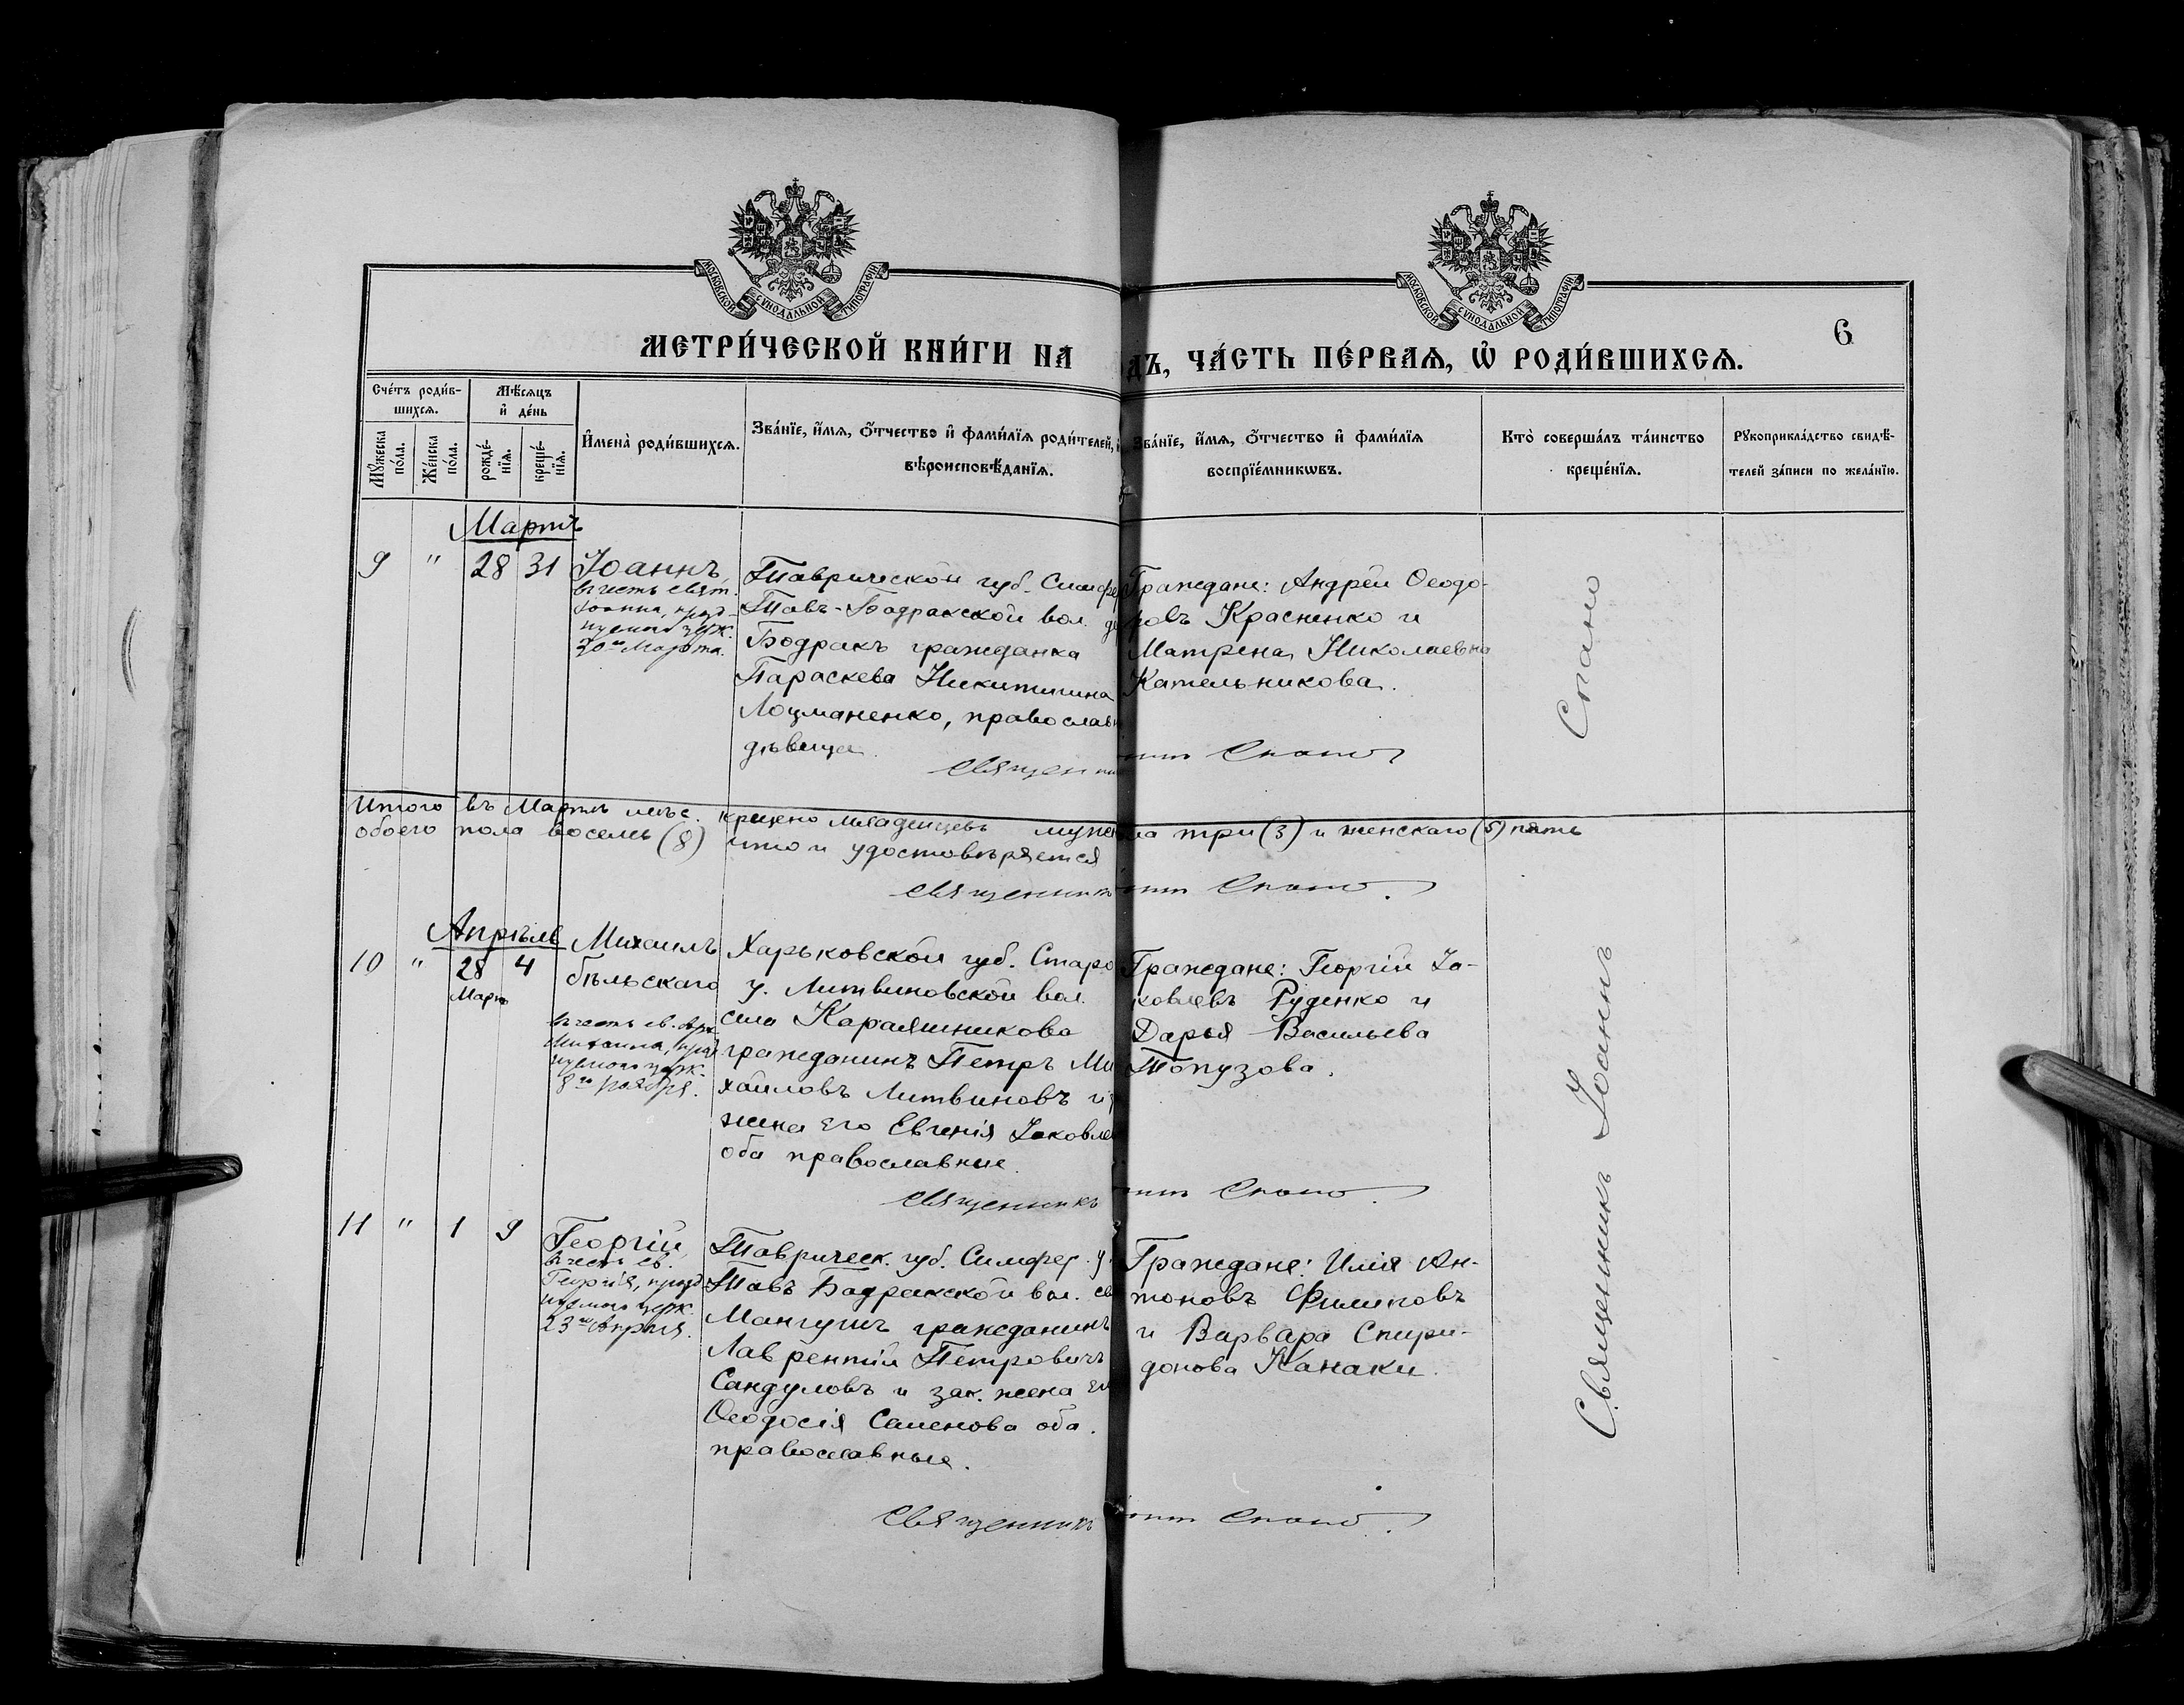 МОСКОВСКОЙ СУНОДАЛЬНОЙ ТИПОГРАФІИ
МОСКОВСКОЙ СУНОДАЛЬНОЙ ТИПОГРАФІИ
6
МЕТРИ́ЧЕСКОЙ КНИ́ГИ НА
дъ, ЧА́СТЬ ПЕ́РВАѦ, Ѿ РОДИ́ВШИХСѦ.
Сче́тъ роди́в-
шихсѧ.
Мѣ́сѧцъ
и҆ де́нь
Мꙋ́жеска по́ла.
Же́нска по́ла.
рожде́-
нїѧ.
креще́-
нїѧ.
И҆мена̀ роди́вшихсѧ.
Зва́нїе, и҆́мѧ, ѻ҆́тчество и҆ фами́лїѧ роди́телей,
вѣроисповѣ́данїѧ.
Зва́нїе, и҆́мѧ, ѻ҆́тчество и҆ фами́лїѧ
воспрїе́мникѡвъ.
Кто̀ соверша́лъ та́инство
креще́нїѧ.
Рꙋкоприкла́дство свидѣ́-
телей за́писи по жела́нїю.
Мартъ
9 " 28 31
Іоаннъ,
въ честь свят.
Іоанна, празд-
нуемаго церк.
30го Марта.
Таврической губ. Симфер
Тавъ-Бадракской вол. де
Бодракъ гражданка
Параскева Никитична
Лоцманенко, православн
дѣвица.
Граждане: Андрей Ѳеодо-
ровъ Красненко и
Матрена Николаевна
Кательникова.
Священникъ Спано
Итого въ Мартѣ мѣс. крещено младенцевъ мужска три (3) и женскаго (5) пять
обоего пола восемь (8) что и удостовѣряется
Священникъ Спано.
Апрѣль
10 " 28 4
Марта
Михаилъ
въ честь св. Арх.
Михаила, праз
нуемаго церк.
8го Ноября.
Харьковской губ. Старо
бѣльскаго у. Литвиновской вол.
села Караяшникова
гражданинъ Петръ Ми
хайловъ Литвиновъ и
жена его Евгенія Іаковле
оба православные.
Граждане: Георгій Іа-
ковлевъ Руденко и
Дарья Васильева
Топузова.
Священникъ Спано.
11 " 1 9
Георгій,
въ честь св.
Георгія, празд
нуемаго церк.
23го Апрѣля.
Таврическ. губ. Симфер. у.
Тавъ Бадракской вол. се
Мангушъ гражданинъ
Лаврентій Петровичъ
Сандуловъ и зак. жена ег
Ѳеодосія Саменова оба
православные.
Граждане: Илія Ан-
тоновъ Филиповъ
и Варвара Спири-
донова Канаки.
Священникъ Спано.
Священникъ Іоаннъ Спано